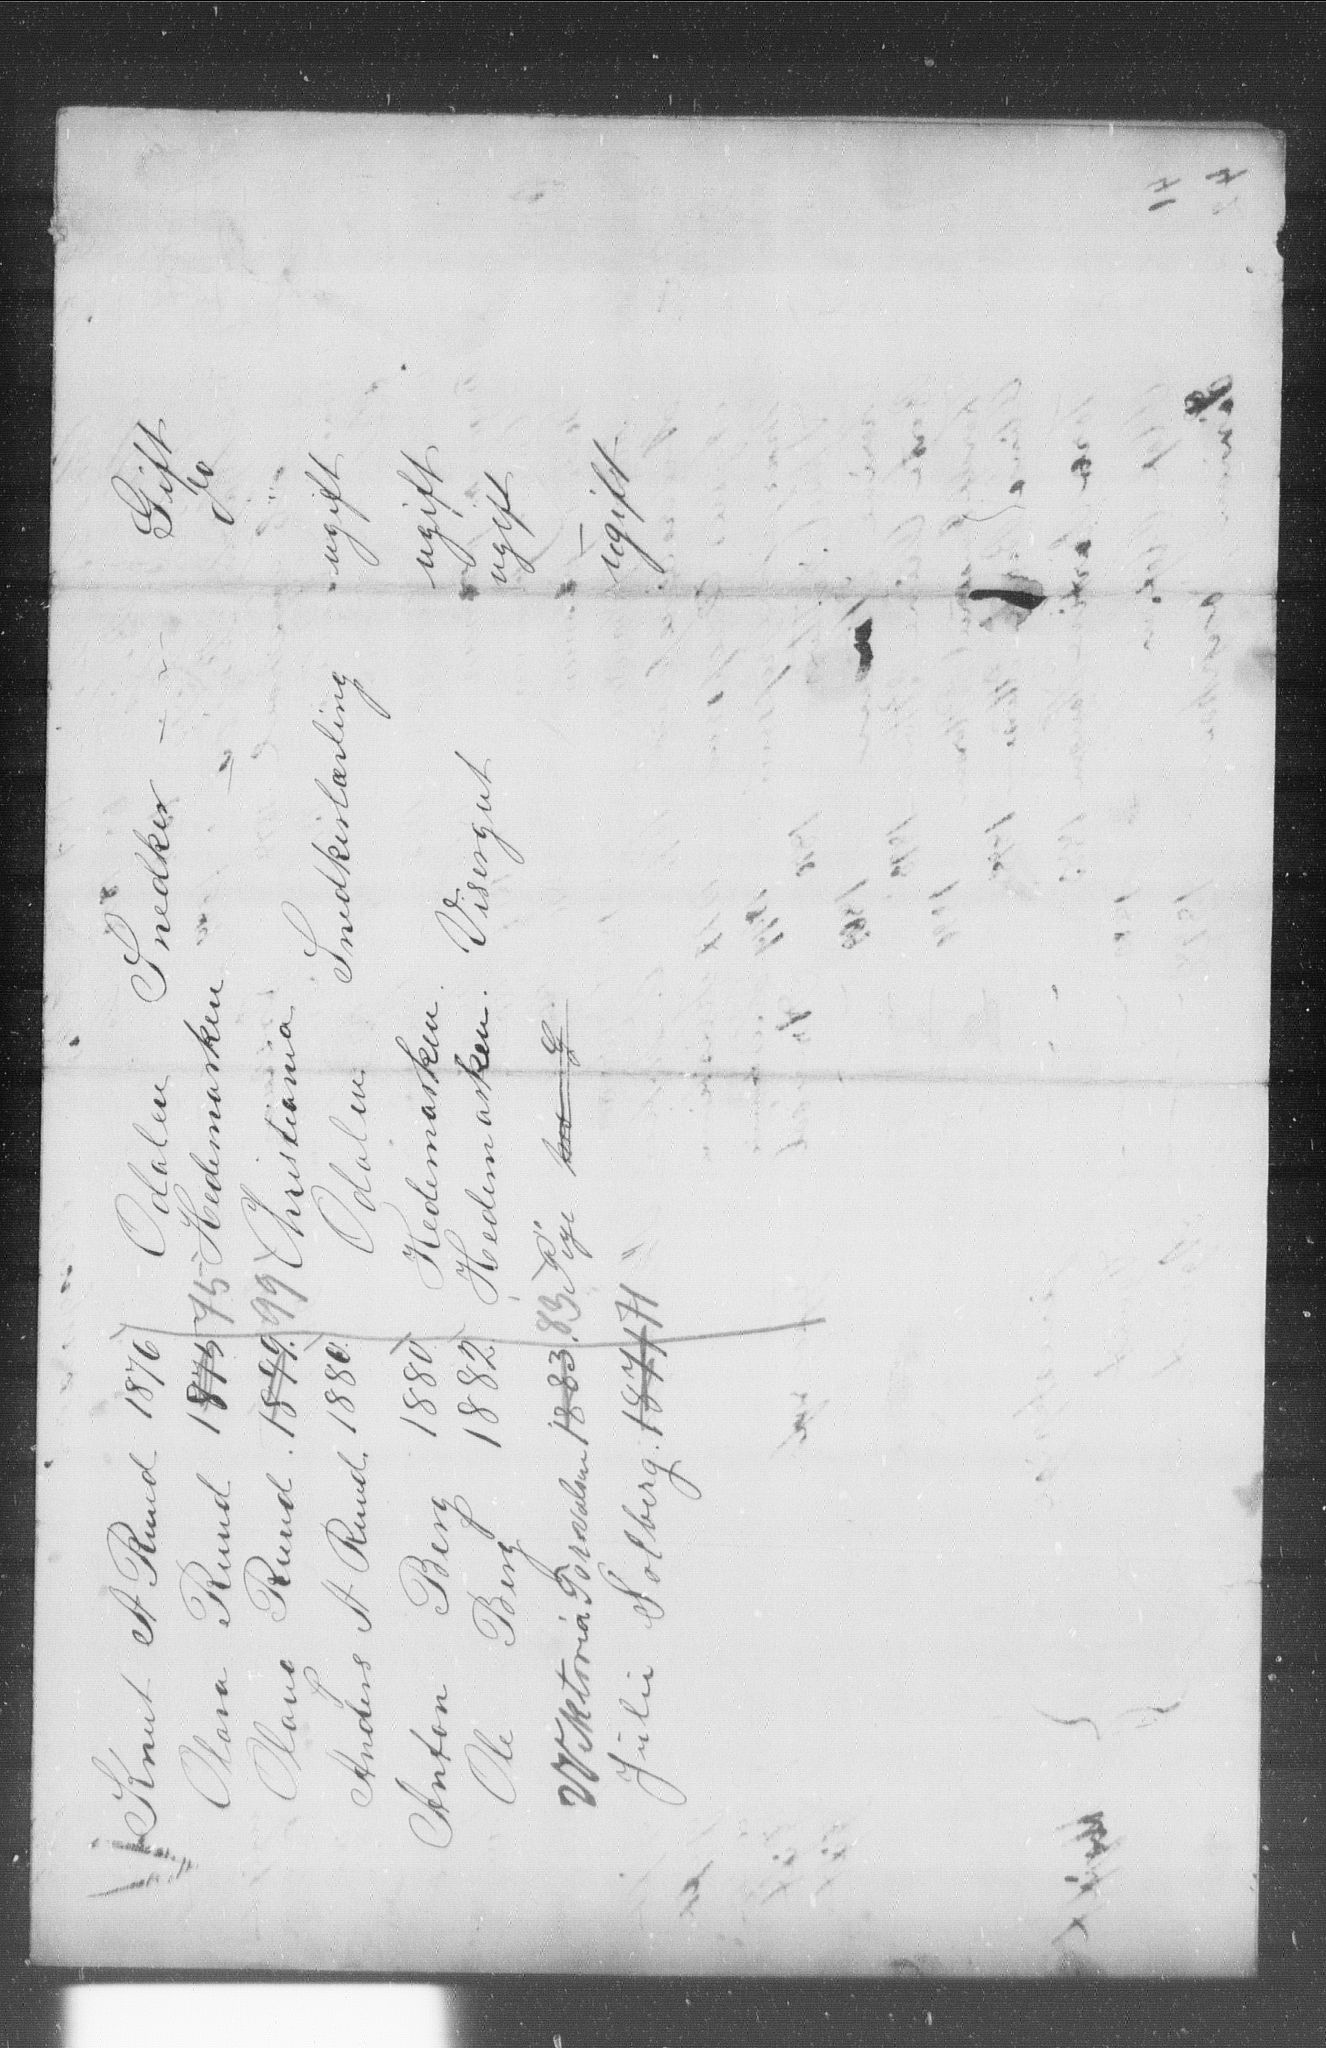 Knut A Ruud 1876 Odalen Snedker — Gift
Olava Ruud 1875 75 Hedemarken — do
Olava Ruud. 1899. 99 Christiania
Anders A Ruud. 1880. Odalen Snedkerlærling ugift
Anton Berg 1880 Hedemarken. ugift
Ole Berg 1882. Hedemarken. Visergut ugift
Viktoria Torvalsen 1883. 83 Pige —
Julie Solberg. 1871 71 " ugift